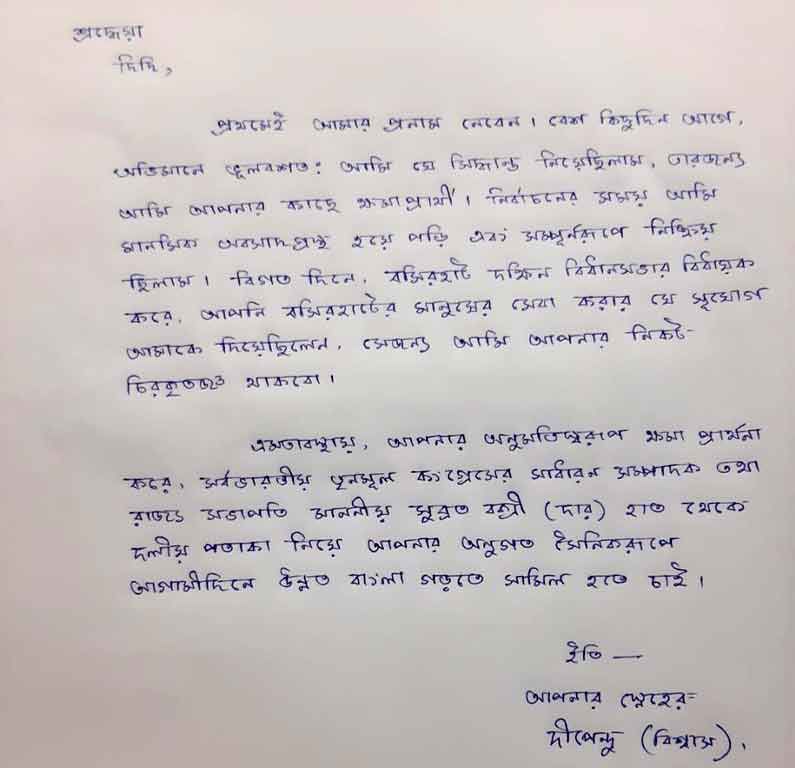 শ্রদ্ধেয়া
দিদি,
প্রথমেই আমার প্রনাম নেবেন। বেশ কিছুদিন আগে,
অভিমানে ভুলবশতঃ আমি যে সিদ্ধান্ত নিয়েছিলাম, তারজন্য
আমি আপনার কাছে ক্ষমাপ্রার্থী। নির্বাচনের সময় আমি
মানসিক অবসাদগ্রস্থ হয়ে পড়ি এবং সম্পূর্নরূপে নিষ্ক্রিয়
ছিলাম। বিগত দিনে, বসিরহাট দক্ষিন বিধানসভার বিধায়ক
করে, আপনি বসিরহাটের মানুষের সেবা করার যে সুযোগ
আমাকে দিয়েছিলেন, সেজন্য আমি আপনার নিকট-
চিরকৃতজ্ঞ থাকবো।
এমতাবস্থায়, আপনার অনুমতিস্বরূপ ক্ষমা প্রার্থনা
করে, সর্বভারতীয় তৃনমূল কংগ্রেসের সাধারন সম্পাদক তথা
রাজ্য সভাপতি মাননীয় সুব্রত বক্সী (দার) হাত থেকে
দলীয় পতাকা নিয়ে আপনার অনুগত সৈনিকরূপে
আগামীদিনে উন্নত বাংলা গড়তে সামিল হতে চাই।
ইতি —
আপনার স্নেহের-
দীপেন্দু (বিশ্বাস),